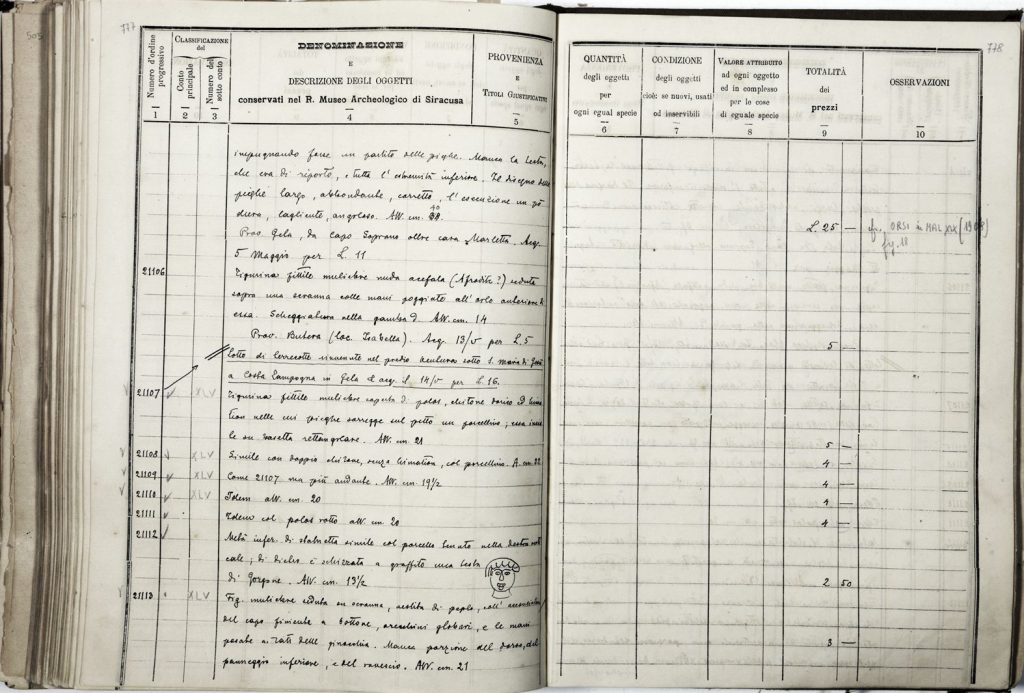 505
777
Numero d'ordine progressivo
CLASSIFICAZIONE del
Conto principale
Numero del sotto conto
DENOMINAZIONE
E
DESCRIZIONE DEGLI OGGETTI
conservati nel R. Museo Archeologico di Siracusa
PROVENIENZA
E
TITOLI GIUSTIFICATIVI
1 2 3 4 5
impugnando forse un partito delle pieghe. Manca la testa,
che era di riporto, e tutta l'estremità inferiore. Il disegno delle
pieghe largo, abbondante, corretto, l'esecuzione un po'
dura, tagliente, angolosa. Alt. cm. 40
Prov. Gela, da Capo Soprano oltre casa Marletta. Acq.
5 Maggio per L. 11
21106 Figurina fittile muliebre nuda acefala (Afrodite?) seduta
sopra una scranna colle mani poggiate all'orlo anteriore di
essa. Scheggiatura nella gamba d. Alt. cm. 14
Prov. Butera (loc. Isabella). Acq. 13/v per L. 5
Lotto di terrecotte rinvenute nel predio sotto S. Maria di Gesù
a Costa Zampogna in Gela ed acq. il 14/v per L. 16.
21107 v XLV Figurina fittile muliebre di polos, chitone dorico ed hima
tion nelle cui pieghe sorregge sul petto un porcellino; essa
su basetta rettangolare. Alt. cm. 21
21108 v XLV Simile con doppio chitone, senza himation, col porcellino. A. cm. 22
21109 v XLV Come 21107 ma più andante. Alt. cm. 19 1/2
21110 v XLV Idem alt. cm. 20
21111 v Idem col polos rotto alt. cm. 20
21112 v Metà infer. di statuetta simile col porcello tenuto nella destra verti
cale; di dietro è schizzata a graffito una testa
di Gorgone. Alt. cm. 13 1/2
21113 XLV Fig. muliebre seduta su scranna, vestita di peplo, coll'acconciatura
del capo finiente a bottone, orecchini globari, e le mani
posate ai lati delle ginocchia. Manca porzione del dorso, del
panneggio inferiore, e del rovescio. Alt. cm. 21
778
QUANTITÀ
degli oggetti
per
ogni egual specie
CONDIZIONE
degli oggetti
cioè: se nuovi, usati
od inservibili
VALORE ATTRIBUITO
ad ogni oggetto
ed in complesso
per le cose
di eguale specie
TOTALITÀ
dei
prezzi
OSSERVAZIONI
6 7 8 9 10
L. 25 — cfr. ORSI in MAL XIX (1908)
fig. 18
5 —
5 —
4 —
4 —
4 —
4 —
2 50
3 —